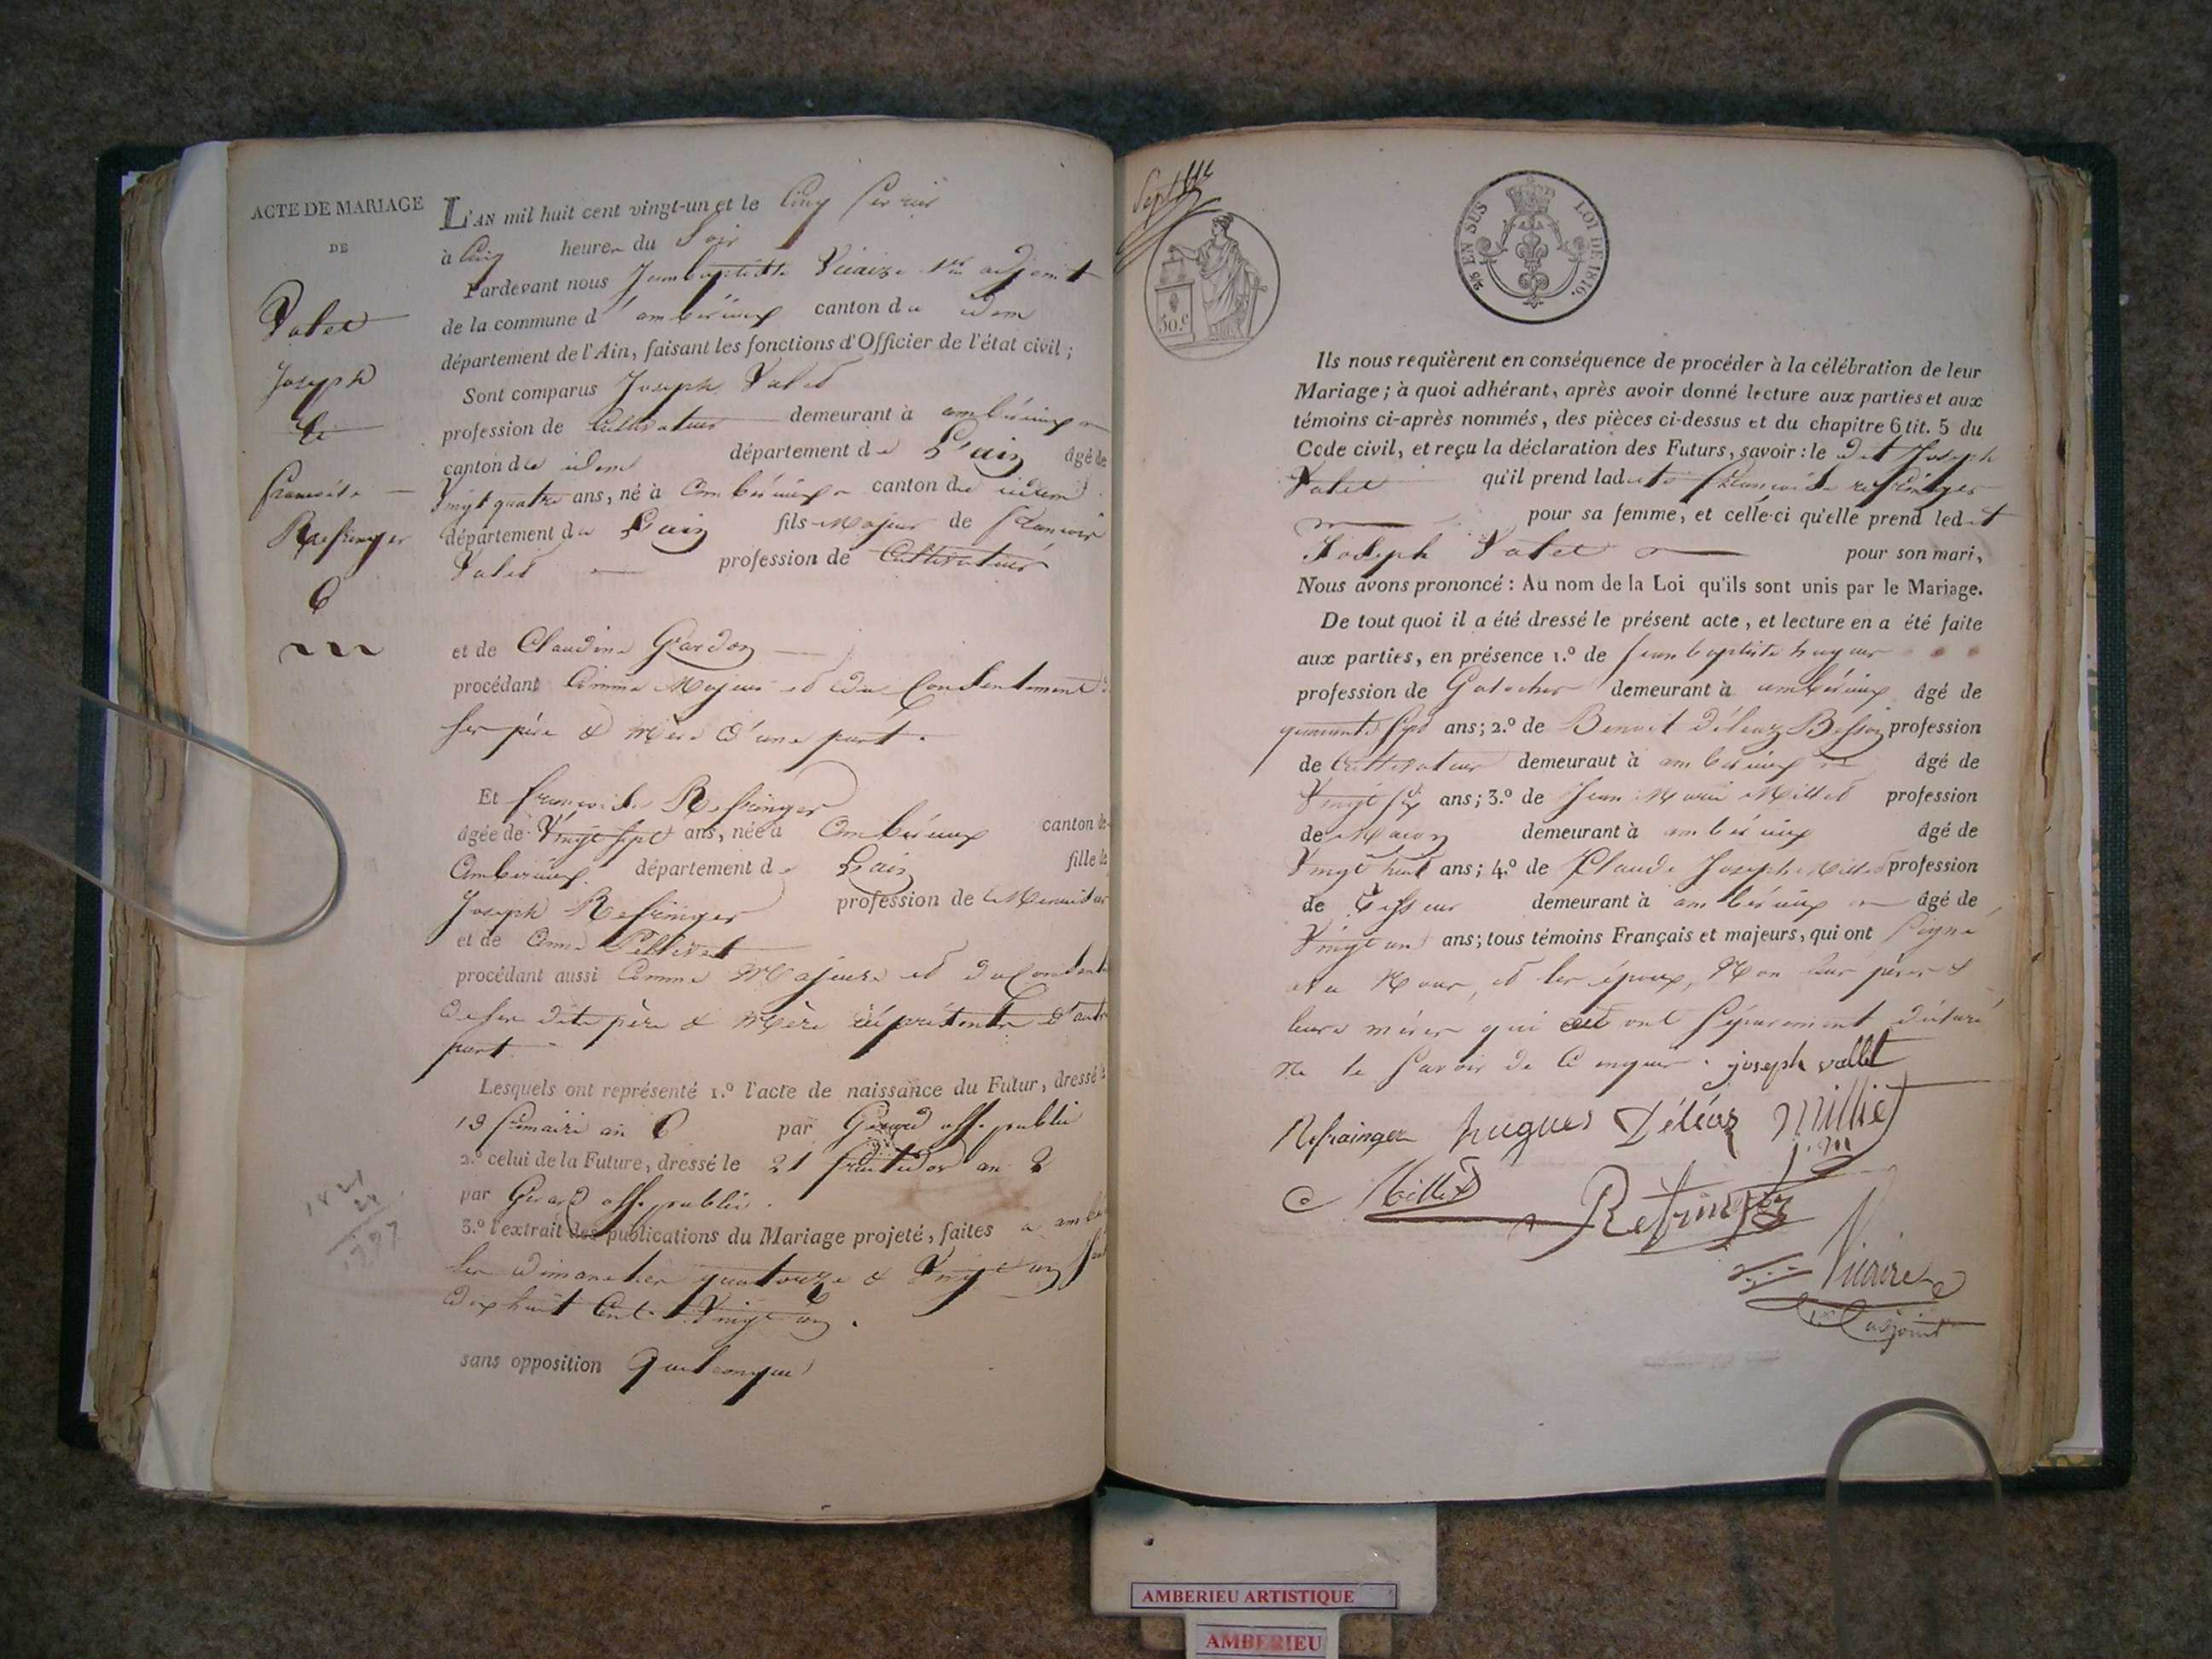 ACTE DE MARIAGE
DE
Valet
Joseph
Et
françoise
Refringer
6
L'AN mil huit cent vingt-un et le Cinq fevrier
à Cinq heures du Soir
Pardevant nous Jean baptiste Vicaire 1er adjoint
de la commune d'amberieux canton du idem
département de l'Ain, faisant les fonctions d'Officier de l'état civil ;
Sont comparus Joseph Valet
profession de Cultivateur demeurant à amberieux
canton du idem département de L'ain âgé de
Vingt quatre ans, né à amberieux canton du idem
département de L'ain fils Majeur de françois
Valet profession de Cultivateur
et de Claudine Gardon
procédant Comme Majeur et du Consentement de
ses père & mère d'une part.
Et françoise Refringer
âgée de Vingt sept ans, née à amberieux canton de
amberieux département de L'ain fille de
Joseph Refringer profession de Menuisier
et de Anne Pellivet
procédant aussi Comme Majeure et du
de ses dits père & mère d'autre
part
Lesquels ont représenté 1.º l'acte de naissance du Futur, dressé le
19 frimaire an 6 par Gerard off. public
2.º celui de la Future, dressé le 21 fructidor an 2
par Gerard off. public.
3.º l'extrait des publications du Mariage projeté, faites a
les dimanches quatorze & Vingt un
dix huit Cent Vingt un.
sans opposition quelconque
1821
24
1797
Sept
50.c
EN SUS LOI DE 1816.
Ils nous requièrent en conséquence de procéder à la célébration de leur
Mariage ; à quoi adhérant, après avoir donné lecture aux parties et aux
témoins ci-après nommés, des pièces ci-dessus et du chapitre 6 tit. 5 du
Code civil, et reçu la déclaration des Futurs, savoir : le dit Joseph
Valet qu'il prend ladite françoise refringer
pour sa femme, et celle-ci qu'elle prend ledit
Joseph Valet pour son mari,
Nous avons prononcé : Au nom de la Loi qu'ils sont unis par le Mariage.
De tout quoi il a été dressé le présent acte, et lecture en a été faite
aux parties, en présence 1.º de jean baptiste hugues
profession de Galocher demeurant à amberieux âgé de
quarante sept ans ; 2.º de Benoit Déléaz Besson profession
de Cultivateur demeuraut à amberieux âgé de
Vingt six ans ; 3.º de Jean Marie Millet profession
de Macon demeurant à amberieux âgé de
Vingt huit ans ; 4.º de Claude Joseph Millet profession
de Tisseur demeurant à amberieux âgé de
Vingt un ans ; tous témoins Français et majeurs, qui ont Signé
avec Nous, et les époux, Non leurs pères &
leurs mères qui ont séparément déclaré
ne le savoir de ce enquis. joseph vallet
Refrainger hugues Déléas Milliet
j. m
C Millet Refringer
Vicaire
1er adjoint
AMBERIEU ARTISTIQUE
AMBERIEU